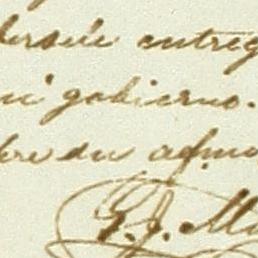 dersele entreg
mi gobierno.
bre su afmo
G. J. Ma